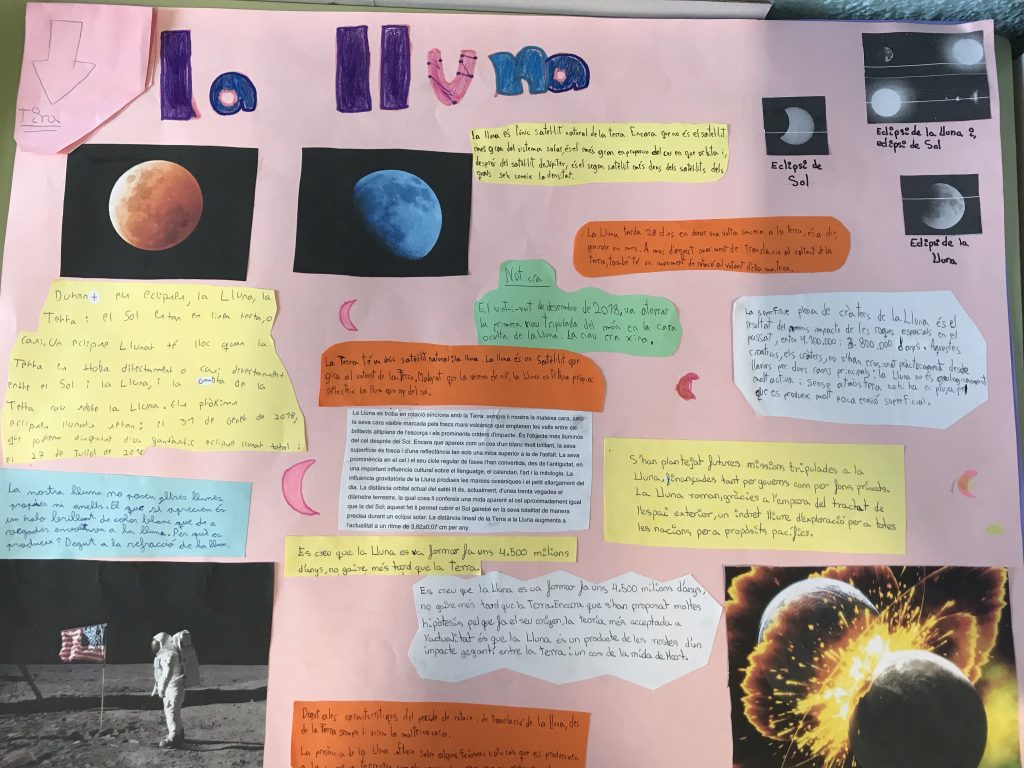 Tira
la lluna
La lluna és l'únic satèl·lit natural de la terra. Encara que no és el satèl·lit
més gran del sistema solar, és el més gran en proporció del cos en que orbita i,
després del satèl·lit de Júpiter, és el segon satèl·lit més dens dels satèl·lits, dels
quals se'n coneix la densitat.
Eclipsi de
Sol
Eclipsi de la lluna i,
eclipsi de Sol
Eclipsi de la
lluna
La Lluna tarda 28 dies en donar una volta sencera a la terra, és a dir,
gairebé un mes. A més d'aquest moviment de translació al voltant de la
terra, també té un moviment de rotació al voltant d'ella mateixa.
Notícia
El vint-i-vuit de desembre de 2018, va aterrar
la primera nau tripulada del món en la cara
oculta de la lluna. La nau era xina.
Durant els eclipses, la Lluna, la
Terra i el Sol estan en línea recta, o
casi. Un eclipse Llunat té lloc quan la
Terra en troba directament o casi directament
entre el Sol i la Lluna, i la ombra de la
Terra cau sobre la Lluna. Els pròxims
eclipses llunats seran: el 31 de gener de 2018,
que podrem disfrutar d'un fantàstic eclipse llunat total i
el 27 de Juliol de 2018
La Terra té un únic satèl·lit natural: la lluna. La lluna és un satèl·lit que
gira al voltant de la Terra. Malgrat que la veiem de nit, la Lluna no té llum pròpia:
reflecteix la llum que rep del sol.
La superfície plena de cràters de la Lluna és el
resultat del impacte de les roques espacials en el
passat, entre 4.100.000 i 3.800.000 d'anys. Aquestes
cicatrius, els cràters, no s'han erosionat pràcticament desde
llavors per dues raons principals: la lluna no és geològicament
molt activa i sense atmosfera no hi ha ni pluja, pel
que es produeix molt poca erosió superficial.
La Lluna es troba en rotació síncrona amb la Terra: sempre li mostra la mateixa cara, amb
la seva cara visible marcada pels foscs mars volcànics que emplenen les valls entre els
brillants altiplans de l'escorça i els prominents cràters d'impacte. Es l'objecte més lluminós
del cel després del Sol. Encara que apareix com un cos d'un blanc molt brillant, la seva
superfície es fosca i d'una reflectància tan sols una mica superior a la de l'asfalt. La seva
prominència en el cel i el seu cicle regular de fases l'han convertida, des de l'antiguitat, en
una important influència cultural sobre el llenguatge, el calendari, l'art i la mitologia. La
influència gravitatòria de la Lluna produeix les marees oceàniques i el petit allargament del
dia. La distància orbital actual del satèl·lit és, actualment, d'unes trenta vegades el
diàmetre terrestre, la qual cosa li confereix una mida aparent al cel aproximadament igual
que la del Sol; aquest fet li permet cobrir el Sol gairebé en la seva totalitat de manera
precisa durant un eclipsi solar. La distància lineal de la Terra a la Lluna augmenta a
l'actualitat a un ritme de 3,82±0,07 cm per any.
S'han plantejat futures missions tripulades a la
Lluna, finançades tant per governs com per fons privats.
La Lluna roman, gràcies a l'empara del tractat de
l'espai exterior, un indret lliure d'exploració per a totes
les nacions per a propòsits pacífics.
La nostra lluna no posseeix altres llunes
pròpies ni anells. El que si apreciem és
un halo brillant de color blanc que de
vegades envolta a la lluna. Per què es
produeix? Degut a la refracció de la llum.
Es creu que la Lluna es va formar fa uns 4.500 milions
d'anys, no gaire més tard que la Terra.
Es creu que la Lluna es va formar fa uns 4.500 milions d'anys,
no gaire més tard que la Terra. Encara que s'han proposat moltes
hipòtesis, pel que fa el seu origen, la teoria més acceptada a
l'actualitat és que la Lluna és un producte de les restes d'un
impacte gegantí entre la Terra i un cos de la mida de Mart.
Degut a les característiques del període de rotació i de translació de la Lluna, des
de la Terra sempre li veiem la mateixa cara.
La presència de la Lluna influeix sobre alguns fenòmens naturals que es produeixen